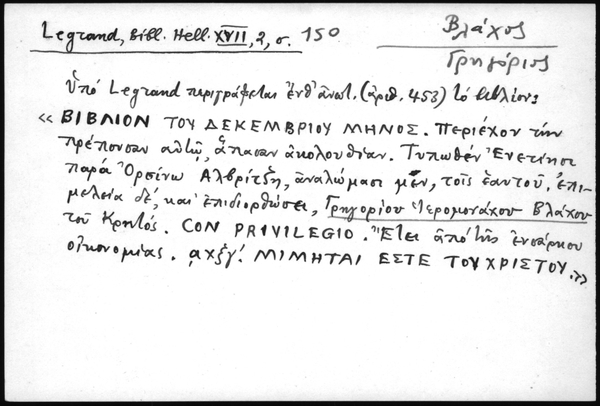 Legrand, Bibl. Hell. XVII, 2, σ. 150
Βλάχος
Γρηγόριος
Ὑπό Legrand περιγράφεται ἐνθ' ἀνωτ. (ἀριθ. 453) τό βιβλίον:
« ΒΙΒΛΙΟΝ ΤΟΥ ΔΕΚΕΜΒΡΙΟΥ ΜΗΝΟΣ. Περιέχον τήν
πρέπουσαν αὐτῷ, ἅπασαν ἀκολουθίαν. Τυπωθέν Ἐνετίησι
παρά Ὀρσίνῳ Ἀλβρίτζῃ, ἀναλώμασι μέν, τοῖς ἑαυτοῦ, ἐπι-
μελεία δέ, καί ἐπιδιορθώσει, Γρηγορίου Ἱερομονάχου Βλάχου
τοῦ Κρητός. CON PRIVILEGIO. Ἔτει ἀπό τῆς ἐνσάρκου
οἰκονομίας. αχξγ'. ΜΙΜΗΤΑΙ ΕΣΤΕ ΤΟΥ ΧΡΙΣΤΟΥ.»